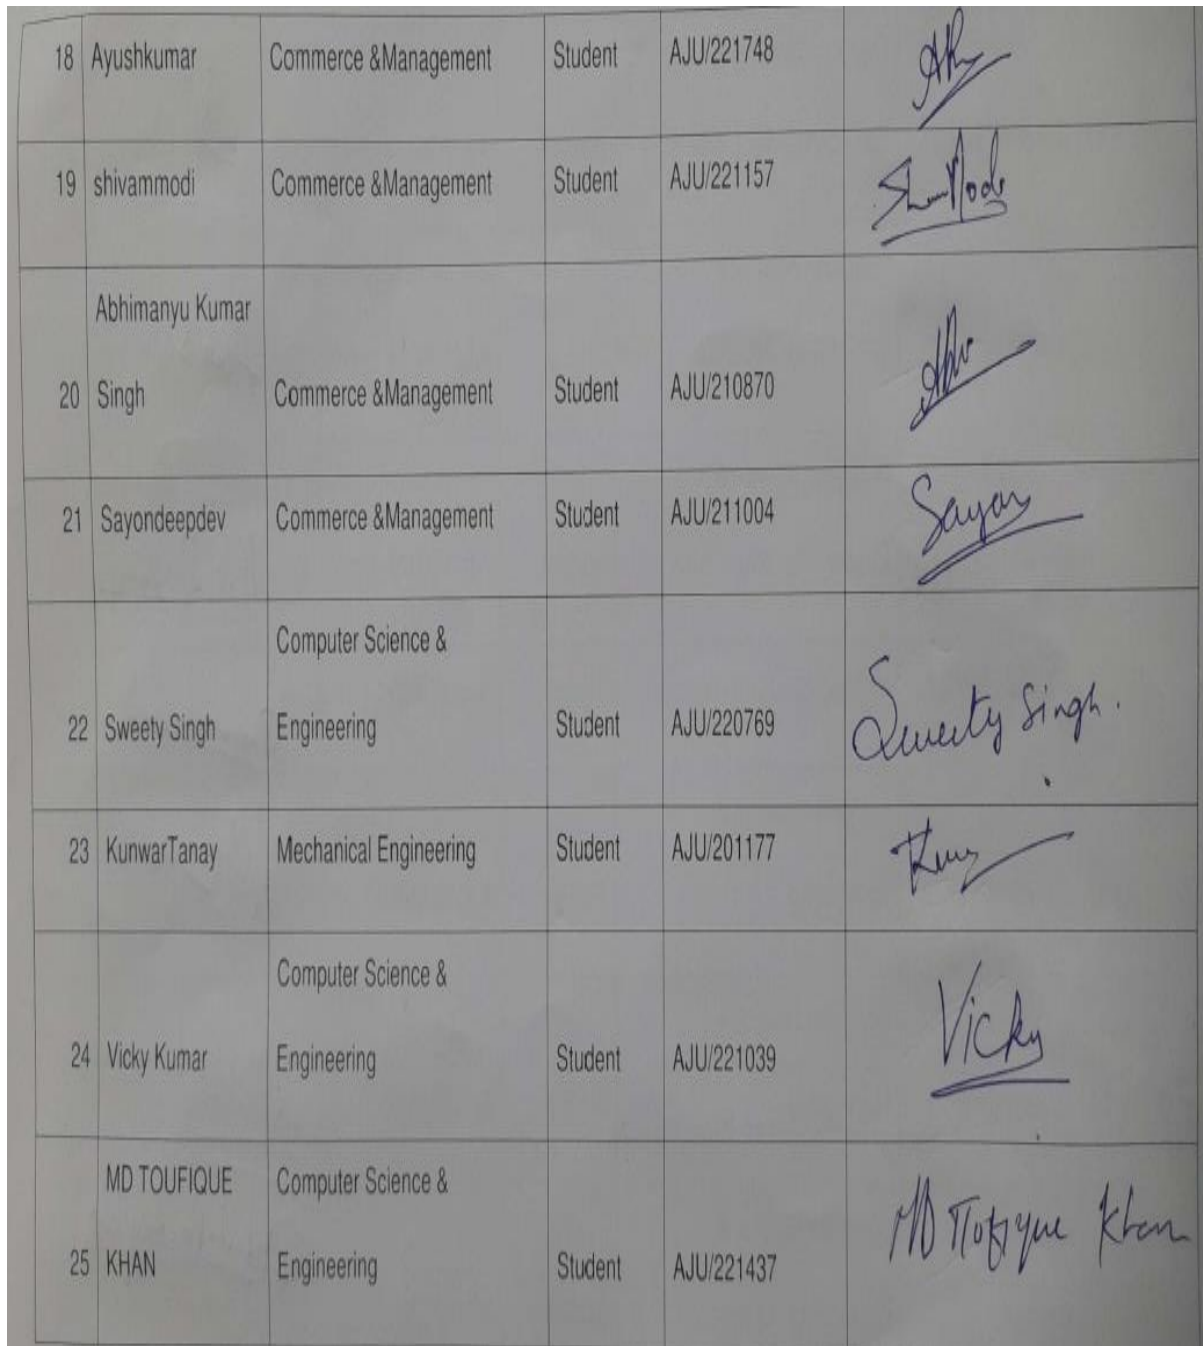 18 Ayushkumar Commerce &Management Student AJU/221748
19 shivammodi Commerce &Management Student AJU/221157
Abhimanyu Kumar
20 Singh Commerce &Management Student AJU/210870
21 Sayondeepdev Commerce &Management Student AJU/211004 Sayan
Computer Science &
22 Sweety Singh Engineering Student AJU/220769 Sweety Singh.
23 KunwarTanay Mechanical Engineering Student AJU/201177
Computer Science &
24 Vicky Kumar Engineering Student AJU/221039 Vicky
MD TOUFIQUE Computer Science &
25 KHAN Engineering Student AJU/221437 MD Khan